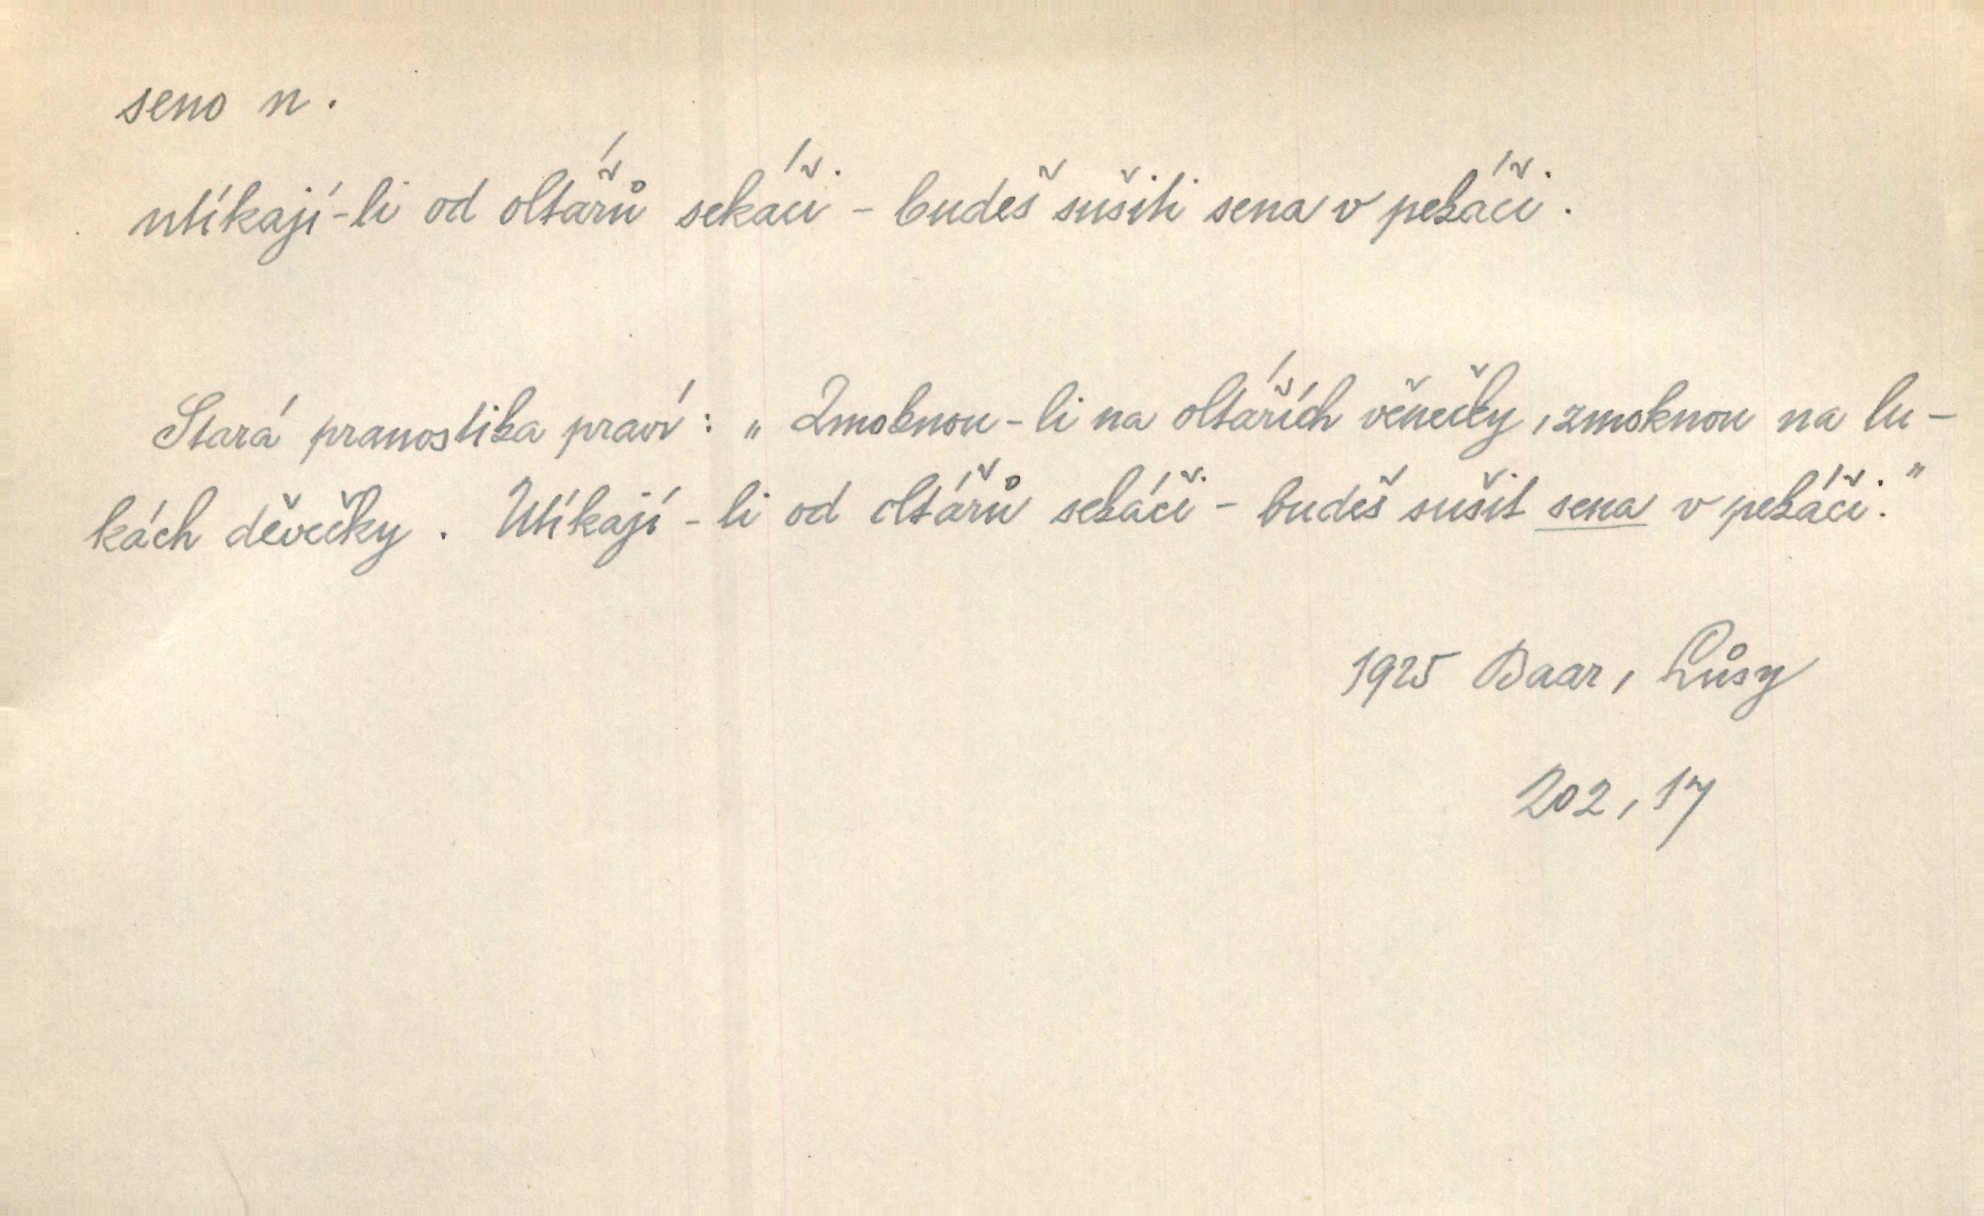 seno n.
utíkají-li od oltářů sekáči - budeš sušiti sena v pekáči.
Stará pranostika praví: „Zmoknou-li na oltářích věnečky, zmoknou na lu-
kách děvečky. Utíkají-li od oltářů sekáči - budeš sušit sena v pekáči."
1925 Baar, Lůsy
202, 17